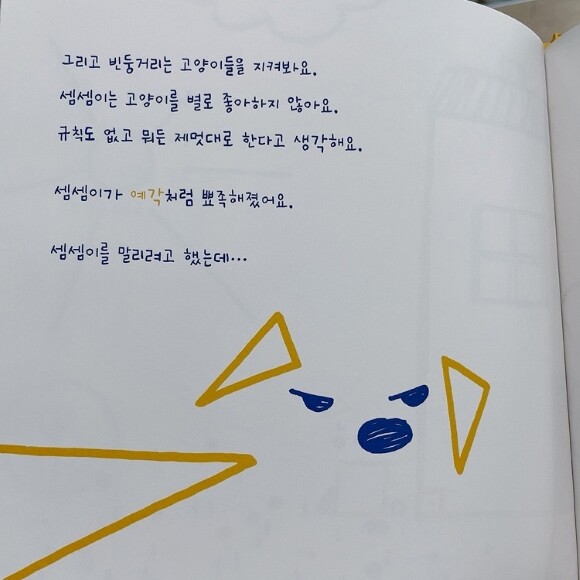 그리고 빈둥거리는 고양이들을 지켜봐요.
셈셈이는 고양이를 별로 좋아하지 않아요.
규칙도 없고 뭐든 제멋대로 한다고 생각해요.
셈셈이가 예각처럼 뾰족해졌어요.
셈셈이를 말리려고 했는데…